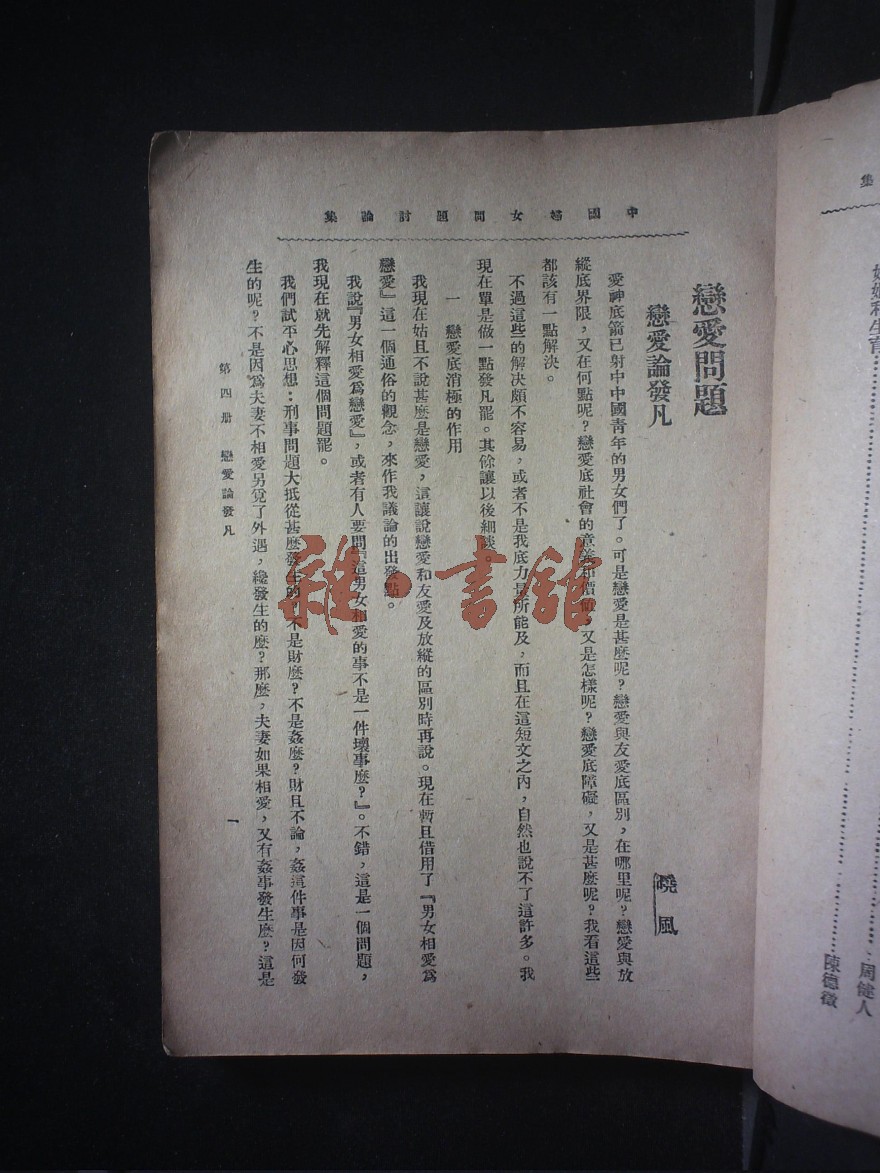 中國婦女問題討論集
戀愛問題
戀愛論發凡
曉風
愛神底箭已射中中國青年的男女們了。可是戀愛是甚麼呢?戀愛與友愛底區別,在哪里呢?戀愛與放
縱底界限,又在何點呢?戀愛底社會的意義和價値,又是怎樣呢?戀愛底障礙,又是甚麼呢?我看這些
都該有一點解決。
不過這些的解決頗不容易,或者不是我底力量所能及,而且在這短文之內,自然也說不了這許多。我
現在單是做一點發凡罷。其餘讓以後細談。
一 戀愛底消極的作用
我現在姑且不說甚麼是戀愛,這讓說戀愛和友愛及放縱的區別時再說。現在暫且借用了『男女相愛爲
戀愛』這一個通俗的觀念,來作我議論的出發點。
我說『男女相愛爲戀愛』,或者有人要問『這男女相愛的事不是一件壞事麼?』。不錯,這是一個問題,
我現在就先解釋這個問題罷。
我們試平心思想:刑事問題大抵從甚麼發生的?不是財麼?不是姦麼?財且不論,姦這件事是因何發
生的呢?不是因爲夫妻不相愛另覓了外遇,纔發生的麼?那麼,夫妻如果相愛,又有姦事發生麼?這是
第四册 戀愛論發凡
一
集
周健人
陳德徵
雜·書館